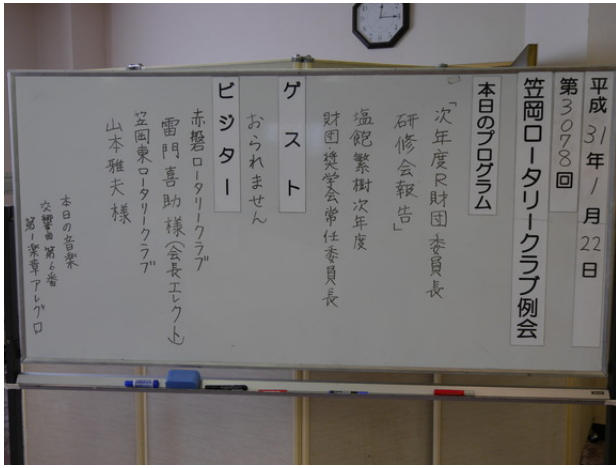 平成31年1月22日
第3078回
笠岡ロータリークラブ例会
本日のプログラム
「次年度R財団委員長
研修会報告」
塩飽繁樹次年度
財団・奨学会常任委員長
ゲスト
おられません
ビジター
赤磐ロータリークラブ
雷門喜助様(会長エレクト)
笠岡東ロータリークラブ
山本雅夫様
本日の音楽
交響曲第6番
第1楽章アレグロ